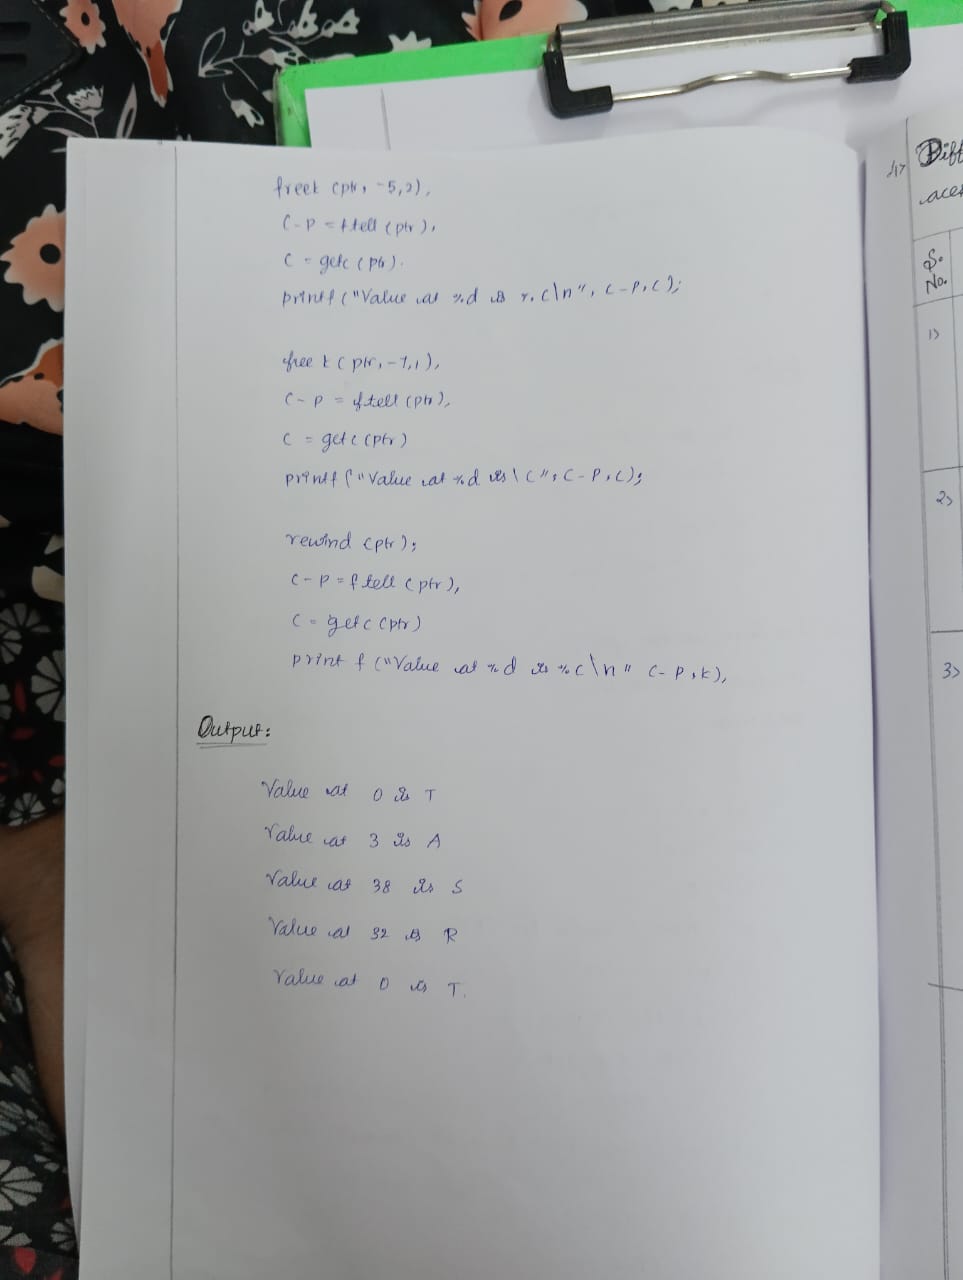 freek (ptr, -5,2),
C-P = ftell (ptr),
C = getc (ptr).
printf ("Value at %d is %c\n", C-P,C);
free k (ptr, -7,1),
C-P = ftell (ptr),
C = getc (ptr)
printf ("Value at %d is \C", C-P,C);
rewind (ptr);
C-P = ftell (ptr),
C = getc (ptr)
print f ("Value at %d is %c\n" C-P,k),
Output:
Value at 0 is T
Value at 3 is A
Value at 38 is S
Value at 32 is R
Value at 0 is T.
S.
No.
1>
2>
3>